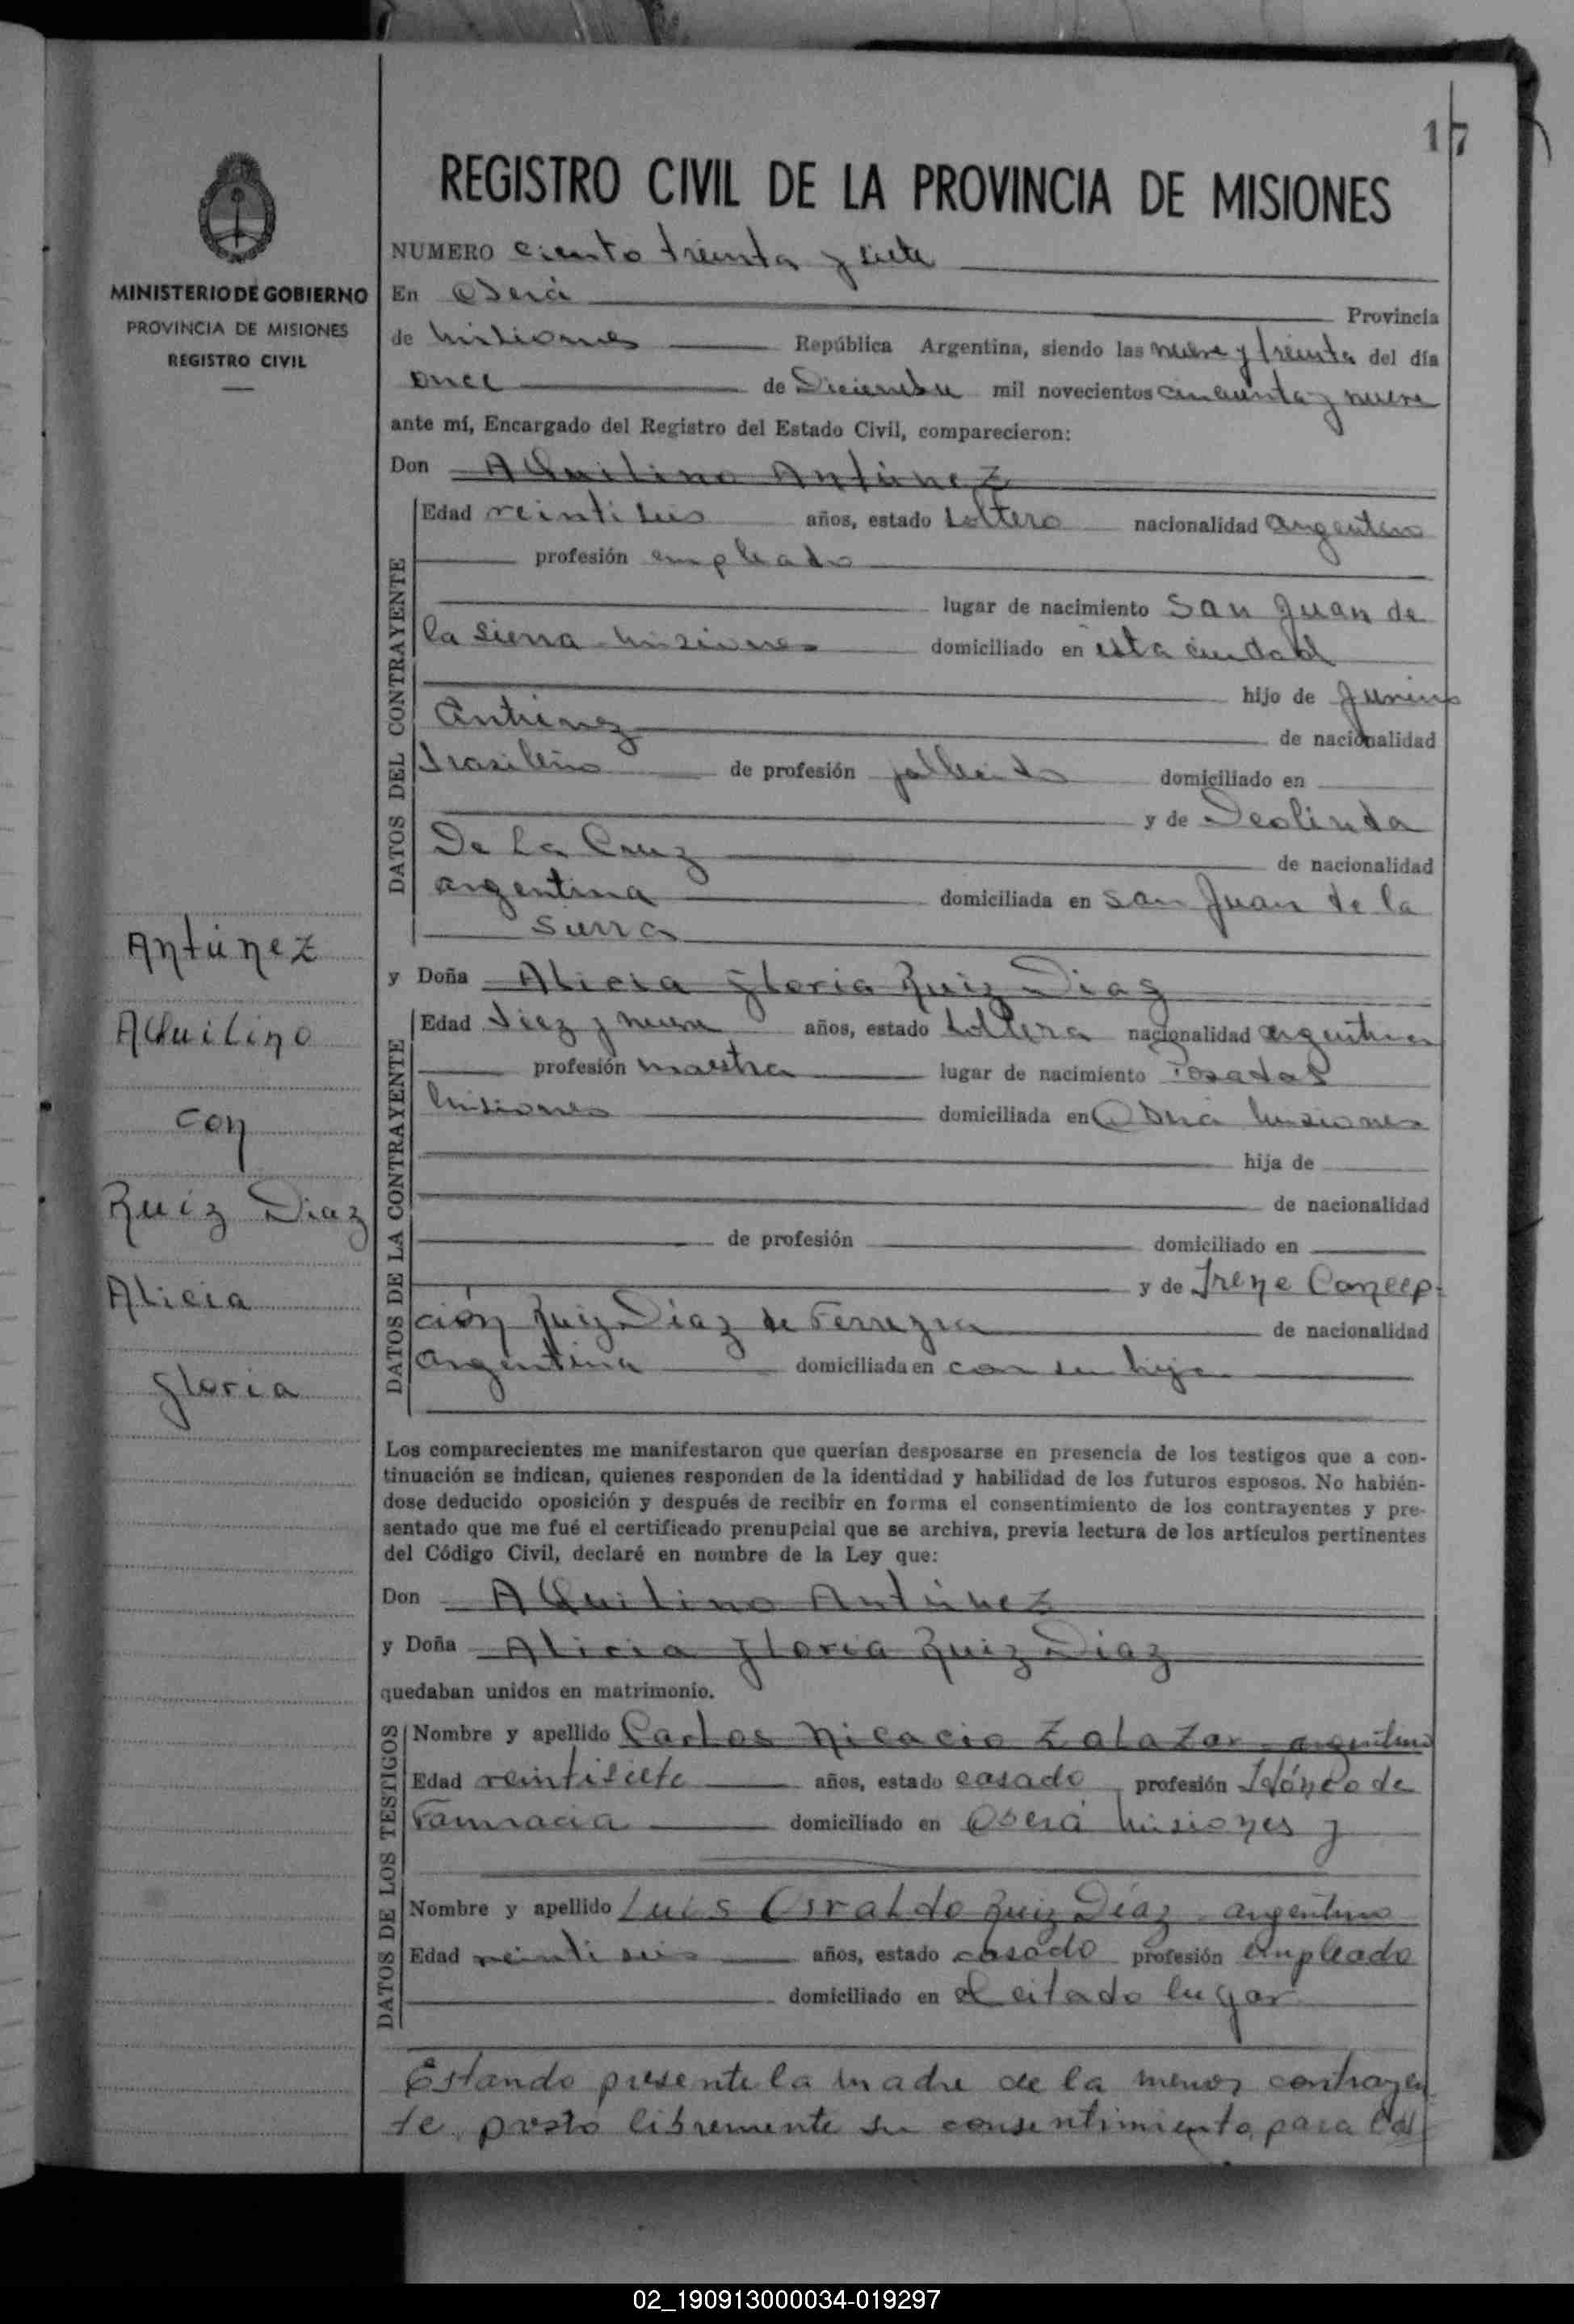 17
REGISTRO CIVIL DE LA PROVINCIA DE MISIONES
MINISTERIO DE GOBIERNO
PROVINCIA DE MISIONES
REGISTRO CIVIL
NUMERO ciento treinta y siete
En Oberá Provincia
de Misiones República Argentina, siendo las nueve y treinta del día
once de Diciembre mil novecientos cincuenta y nueve
ante mí, Encargado del Registro del Estado Civil, comparecieron:
Don AQuilino Antúnez
DATOS DEL CONTRAYENTE
Edad veintiseis años, estado soltero nacionalidad argentino
profesión empleado
lugar de nacimiento San Juan de
la Sierra Misiones domiciliado en esta ciudad
hijo de
Antúnez de nacionalidad
brasileño de profesión domiciliado en
y de Deolinda
De La Cruz de nacionalidad
argentina domiciliada en San Juan de la
Sierra
y Doña Alicia Gloria Ruiz Diaz
DATOS DE LA CONTRAYENTE
Edad diez y nueve años, estado soltera nacionalidad argentina
profesión maestra lugar de nacimiento Posadas
Misiones domiciliada en Oberá Misiones
hija de
de nacionalidad
de profesión domiciliado en
y de Irene Concep-
ción Ruiz Díaz de de nacionalidad
argentina domiciliada en con su hija
Los comparecientes me manifestaron que querían desposarse en presencia de los testigos que a con-
tinuación se indican, quienes responden de la identidad y habilidad de los futuros esposos. No habién-
dose deducido oposición y después de recibir en forma el consentimiento de los contrayentes y pre-
sentado que me fué el certificado prenupcial que se archiva, previa lectura de los artículos pertinentes
del Código Civil, declaré en nombre de la Ley que:
Don AQuilino Antúnez
y Doña Alicia Gloria Ruiz Diaz
quedaban unidos en matrimonio.
DATOS DE LOS TESTIGOS
Nombre y apellido Carlos Nicacio Zalazar - argentino
Edad veintisiete años, estado casado profesión Idóneo de
Farmacia domiciliado en Oberá Misiones y
Nombre y apellido Luis Osvaldo Ruiz Díaz - argentino
Edad veintiseis años, estado casado profesión empleado
domiciliado en el citado lugar
Estando presente la madre de la menor contrayen
te, prestó libremente su consentimiento para
Antúnez
AQuilino
con
Ruiz Diaz
Alicia
Gloria
02_190913000034-019297